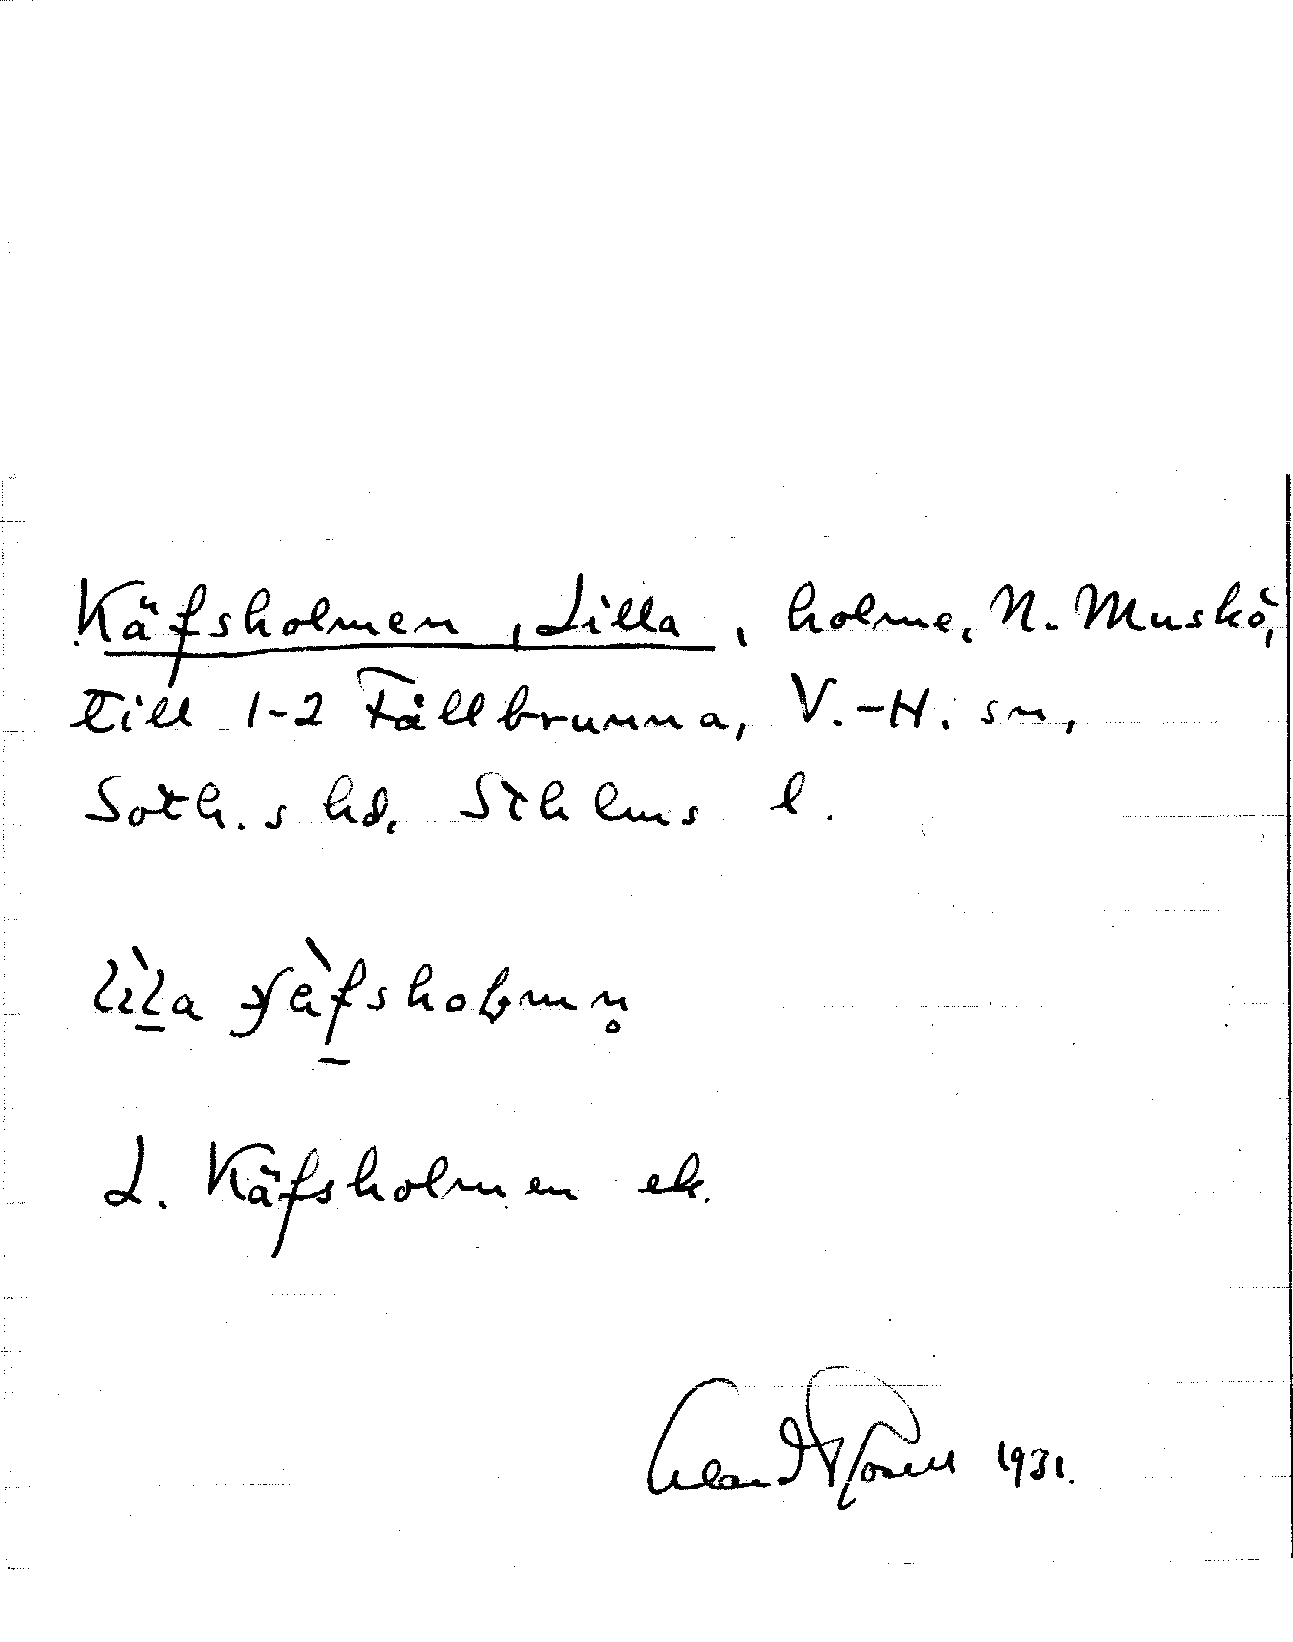 Käfsholmen, Lilla, holme, N. Muskö,
till 1-2 Fållbrunna, V.-H. sn,
Soth. s hd, Sthlms l.
lìl̠a
L. Käfsholmen ek.
1931.